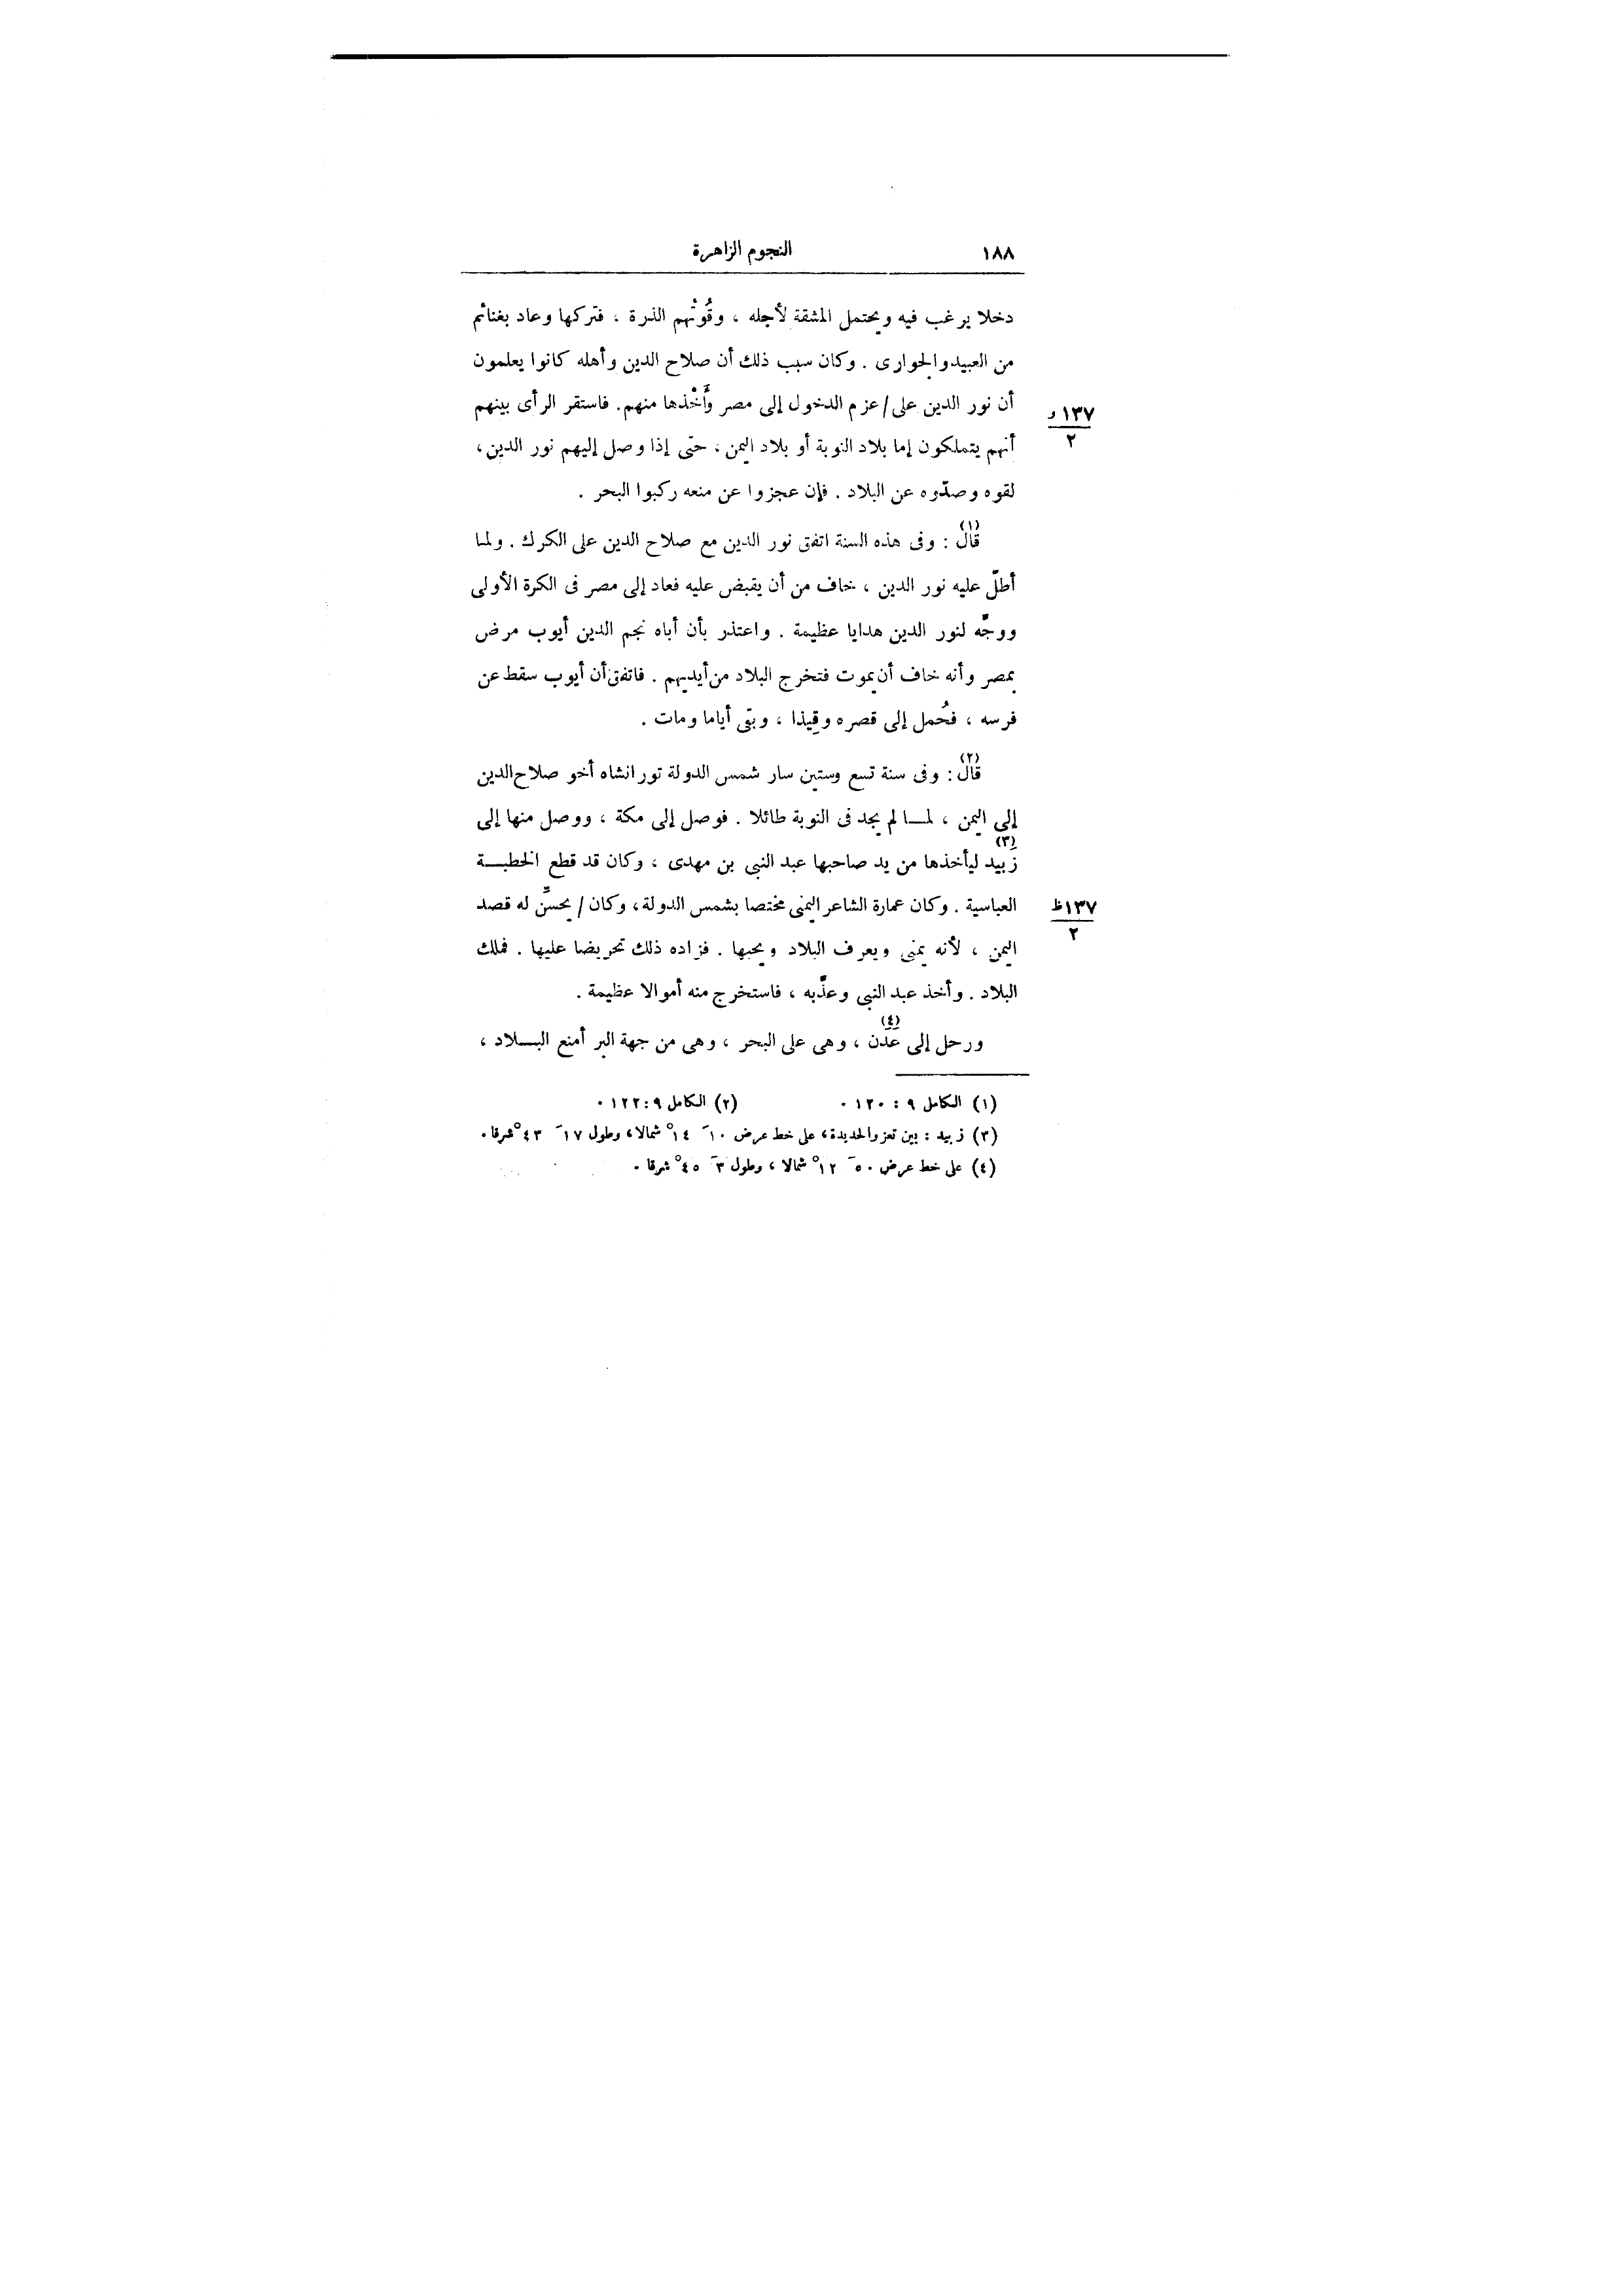 ١٨٨ النجوم الزاهرة
دخلا يرغب فيه ويحتمل المشقة لأجله ، وقُوتُهم الذرة ، فتركها وعاد بغنائم
من العبيد والجوارى . وكان سبب ذلك أن صلاح الدين وأهله كانوا يعلمون
أن نور الدين على / عزم الدخول إلى مصر وأَخْذها منهم. فاستقر الرأى بينهم
١٣٧ و
٢
أنهم يتملكون إما بلاد النوبة أو بلاد اليمن ، حتى إذا وصل إليهم نور الدين ،
لقوه وصدّوه عن البلاد . فإن عجزوا عن منعه ركبوا البحر .
قال (١) : وفى هذه السنة اتفق نور الدين مع صلاح الدين على الكرك . ولما
أطلّ عليه نور الدين ، خاف من أن يقبض عليه فعاد إلى مصر فى الكرة الأولى
ووجّه لنور الدين هدايا عظيمة . واعتذر بأن أباه نجم الدين أيوب مرض
بمصر وأنه خاف أن يموت فتخرج البلاد من أيديهم . فاتفق أن أيوب سقط عن
فرسه ، فحُمل إلى قصره وقيذا ، وبقى أياما ومات .
قال (٢) : وفى سنة تسع وستين سار شمس الدولة تورانشاه أخو صلاح الدين
إلى اليمن ، لمـــا لم يجد فى النوبة طائلا . فوصل إلى مكة ، ووصل منها إلى
زَبيد (٣) ليأخذها من يد صاحبها عبد النبى بن مهدى ، وكان قد قطع الخطبـــة
العباسية . وكان عمارة الشاعر اليمنى مختصا بشمس الدولة ، وكان / يحسّن له قصد
١٣٧ ظ
٢
اليمن ، لأنه يمنى ويعرف البلاد ويحبها . فزاده ذلك تحريضا عليها . فملك
البلاد . وأخذ عبد النبى وعذّبه ، فاستخرج منه أموالا عظيمة .
ورحل إلى عَدَن (٤) ، وهى على البحر ، وهى من جهة البر أمنع البـــلاد ،
(١) الكامل ٩ : ١٢٠ . (٢) الكامل ٩ : ١٢٢ .
(٣) زبيد : بين تعز والحديدة ، على خط عرض ١٠َ ١٤ْ شمالا ، وطول ١٧َ ٤٣ْ شرقا .
(٤) على خط عرض ٥٠َ ١٢ْ شمالا ، وطول ٣َ ٤٥ْ شرقا .